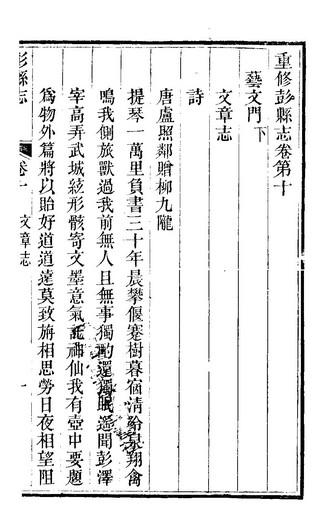 重修彭縣志卷第十
藝文門下
文章志
詩
唐盧照鄰贈柳九隴
提琴一萬里負書三十年晨攀偃蹇樹暮宿清泠泉翔禽
鳴我側旅獸過我前無人且無事獨酌還獨眠遥聞彭澤
宰高弄武城絃形骸寄文墨意氣託神仙我有壺中要題
為物外篇將以貽好道道遠莫致旃相思勞日夜相望阻
彭縣志
卷十
文章志
一